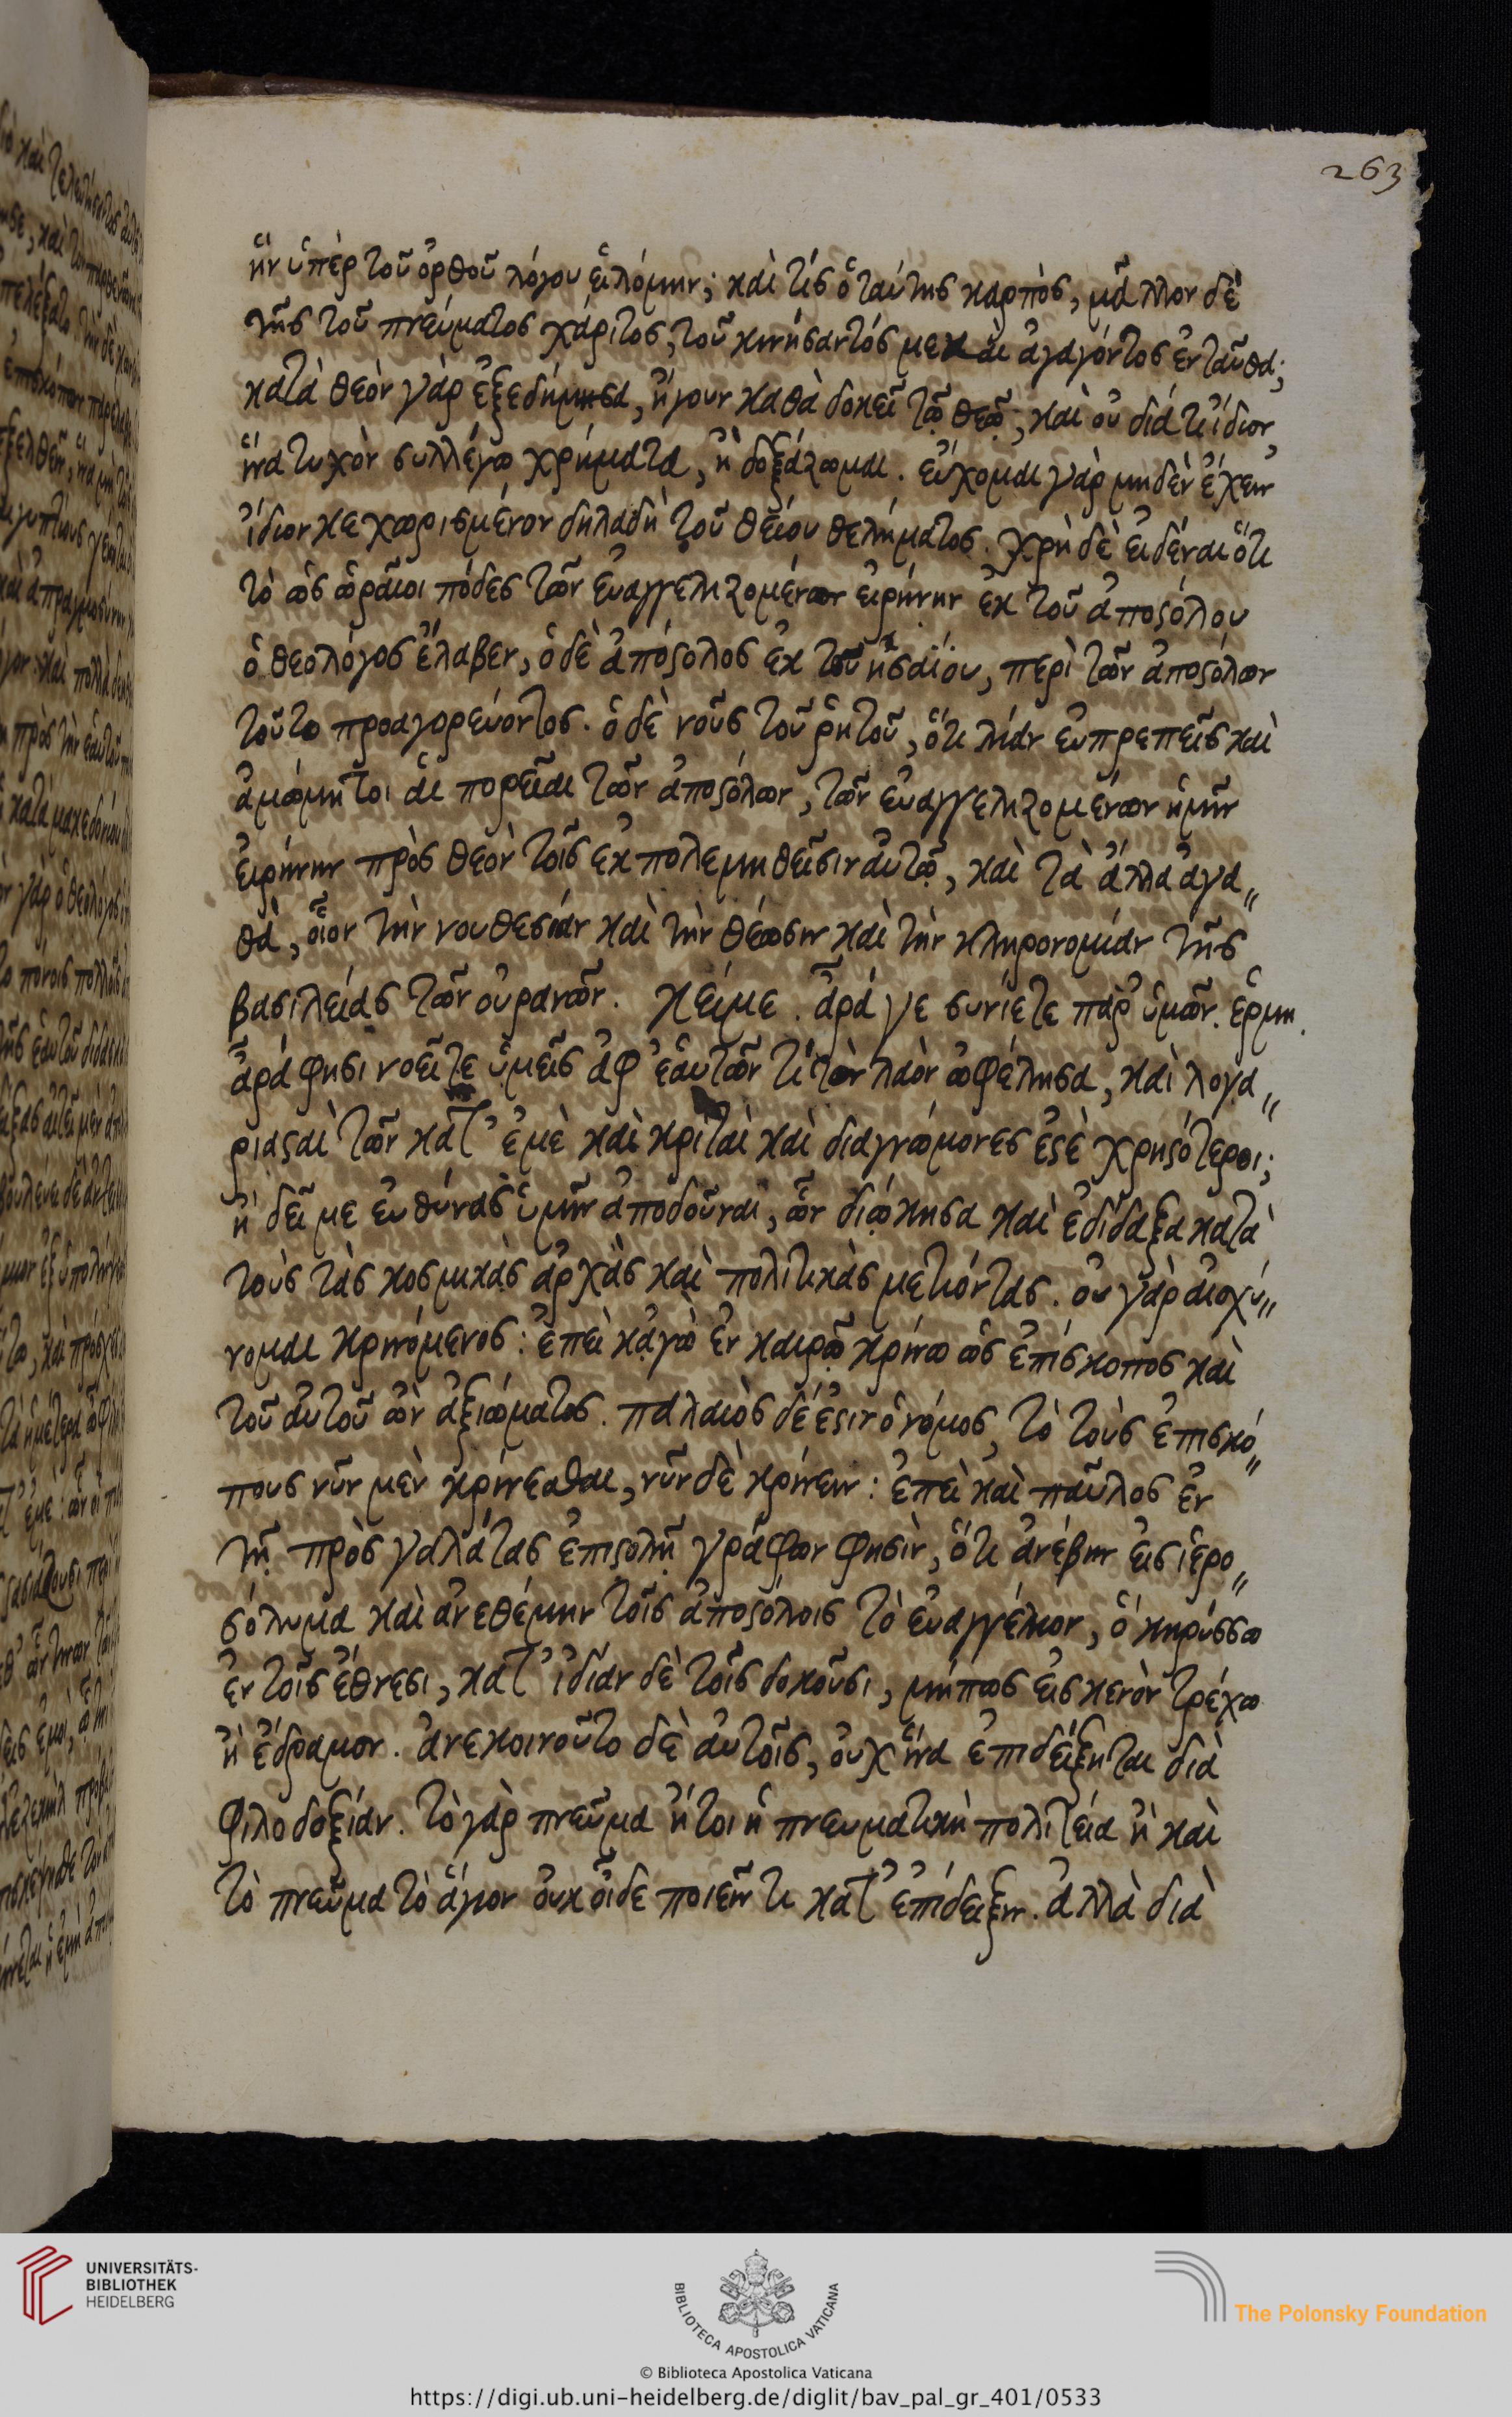 263
ἣν ὑπὲρ τοῦ ὀρθοῦ λόγου εἱλόμην; καὶ τίς ὁ ταύτης καρπὸς, μᾶλλον δὲ
τῆς τοῦ πνεύματος χάριτος, τοῦ κινήσαντός με καὶ ἀγαγόντος ἐνταῦθα;
κατὰ θεὸν γὰρ ἐξεδήμησα, ἤγουν καθὰ δοκεῖ τῷ θεῷ; καὶ οὐ διά τι ἴδιον,
ἵνα τυχὸν συλλέγω χρήματα, ἢ δοξάζωμαι. εὔχομαι γὰρ μηδὲν ἔχειν
ἴδιον κεχωρισμένον δηλαδὴ τοῦ θείου θελήματος. χρὴ δὲ εἰδέναι ὅτι
τὸ ὡς ὡραῖοι πόδες τῶν εὐαγγελιζομένων εἰρήνην ἐκ τοῦ ἀποστόλου
ὁ θεολόγος ἔλαβεν, ὁ δὲ ἀπόστολος ἐκ τοῦ ἡσαΐου, περὶ τῶν ἀποστόλων
τοῦτο προαγορεύοντος. ὁ δὲ νοῦς τοῦ ῥητοῦ, ὅτι λίαν εὐπρεπεῖς καὶ
ἀμώμητοι αἱ πορεῖαι τῶν ἀποστόλων, τῶν εὐαγγελιζομένων ἡμῖν
εἰρήνην πρὸς θεὸν τοῖς ἐκπολεμηθεῖσιν αὐτῷ, καὶ τὰ ἄλλα ἀγα〃
θὰ, οἷον τὴν νουθεσίαν καὶ τὴν θέωσιν καὶ τὴν κληρονομίαν τῆς
βασιλείας τῶν οὐρανῶν. κείμε. ἆρά γε συνίετε παρ' ὑμῶν. ἑρμη.
ἆρά φησι νοεῖτε ὑμεῖς ἀφ' ἑαυτῶν τί τὸν λαὸν ὠφέλησα, καὶ λογα〃
ριασταὶ τῶν κατ' ἐμὲ καὶ κριταὶ καὶ διαγνώμονες ἐστὲ χρηστότεροι;
ἢ δεῖ με εὐθύνας ὑμῖν ἀποδοῦναι, ὧν διῴκησα καὶ ἐδίδαξα κατὰ
τοὺς τὰς κοσμικὰς ἀρχὰς καὶ πολιτικὰς μετιόντας. οὐ γὰρ αἰσχύ〃
νομαι κρινόμενος: ἐπεὶ κἀγὼ ἐν καιρῷ κρίνω ὡς ἐπίσκοπος καὶ
τοῦ αὐτοῦ ὢν ἀξιώματος. παλαιὸς δέ ἐστιν ὁ νόμος, τὸ τοὺς ἐπισκό〃
πους νῦν μὲν κρίνεσθαι, νῦν δὲ κρίνειν: ἐπεὶ καὶ παῦλος ἐν
τῇ πρὸς γαλάτας ἐπιστολῇ γράφων φησὶν, ὅτι ἀνέβην εἰς ἱερο〃
σόλυμα καὶ ἀνεθέμην τοῖς ἀποστόλοις τὸ εὐαγγέλιον, ὃ κηρύσσω
ἐν τοῖς ἔθνεσι, κατ' ἰδίαν δὲ τοῖς δοκοῦσι, μήπως εἰς κενὸν τρέχω
ἢ ἔδραμον. ἀνεκοινοῦτο δὲ αὐτοῖς, οὐχ ἵνα ἐπιδείξηται διὰ
φιλοδοξίαν. τὸ γὰρ πνεῦμα ἤτοι ἡ πνευματικὴ πολιτεία ἢ καὶ
τὸ πνεῦμα τὸ ἅγιον οὐκ οἶδε ποιεῖν τι κατ' ἐπίδειξιν. ἀλλὰ διὰ
UNIVERSITÄTS-
BIBLIOTHEK
HEIDELBERG
BIBLIOTECA APOSTOLICA VATICANA
The Polonsky Foundation
© Biblioteca Apostolica Vaticana
https://digi.ub.uni-heidelberg.de/diglit/bav_pal_gr_401/0533